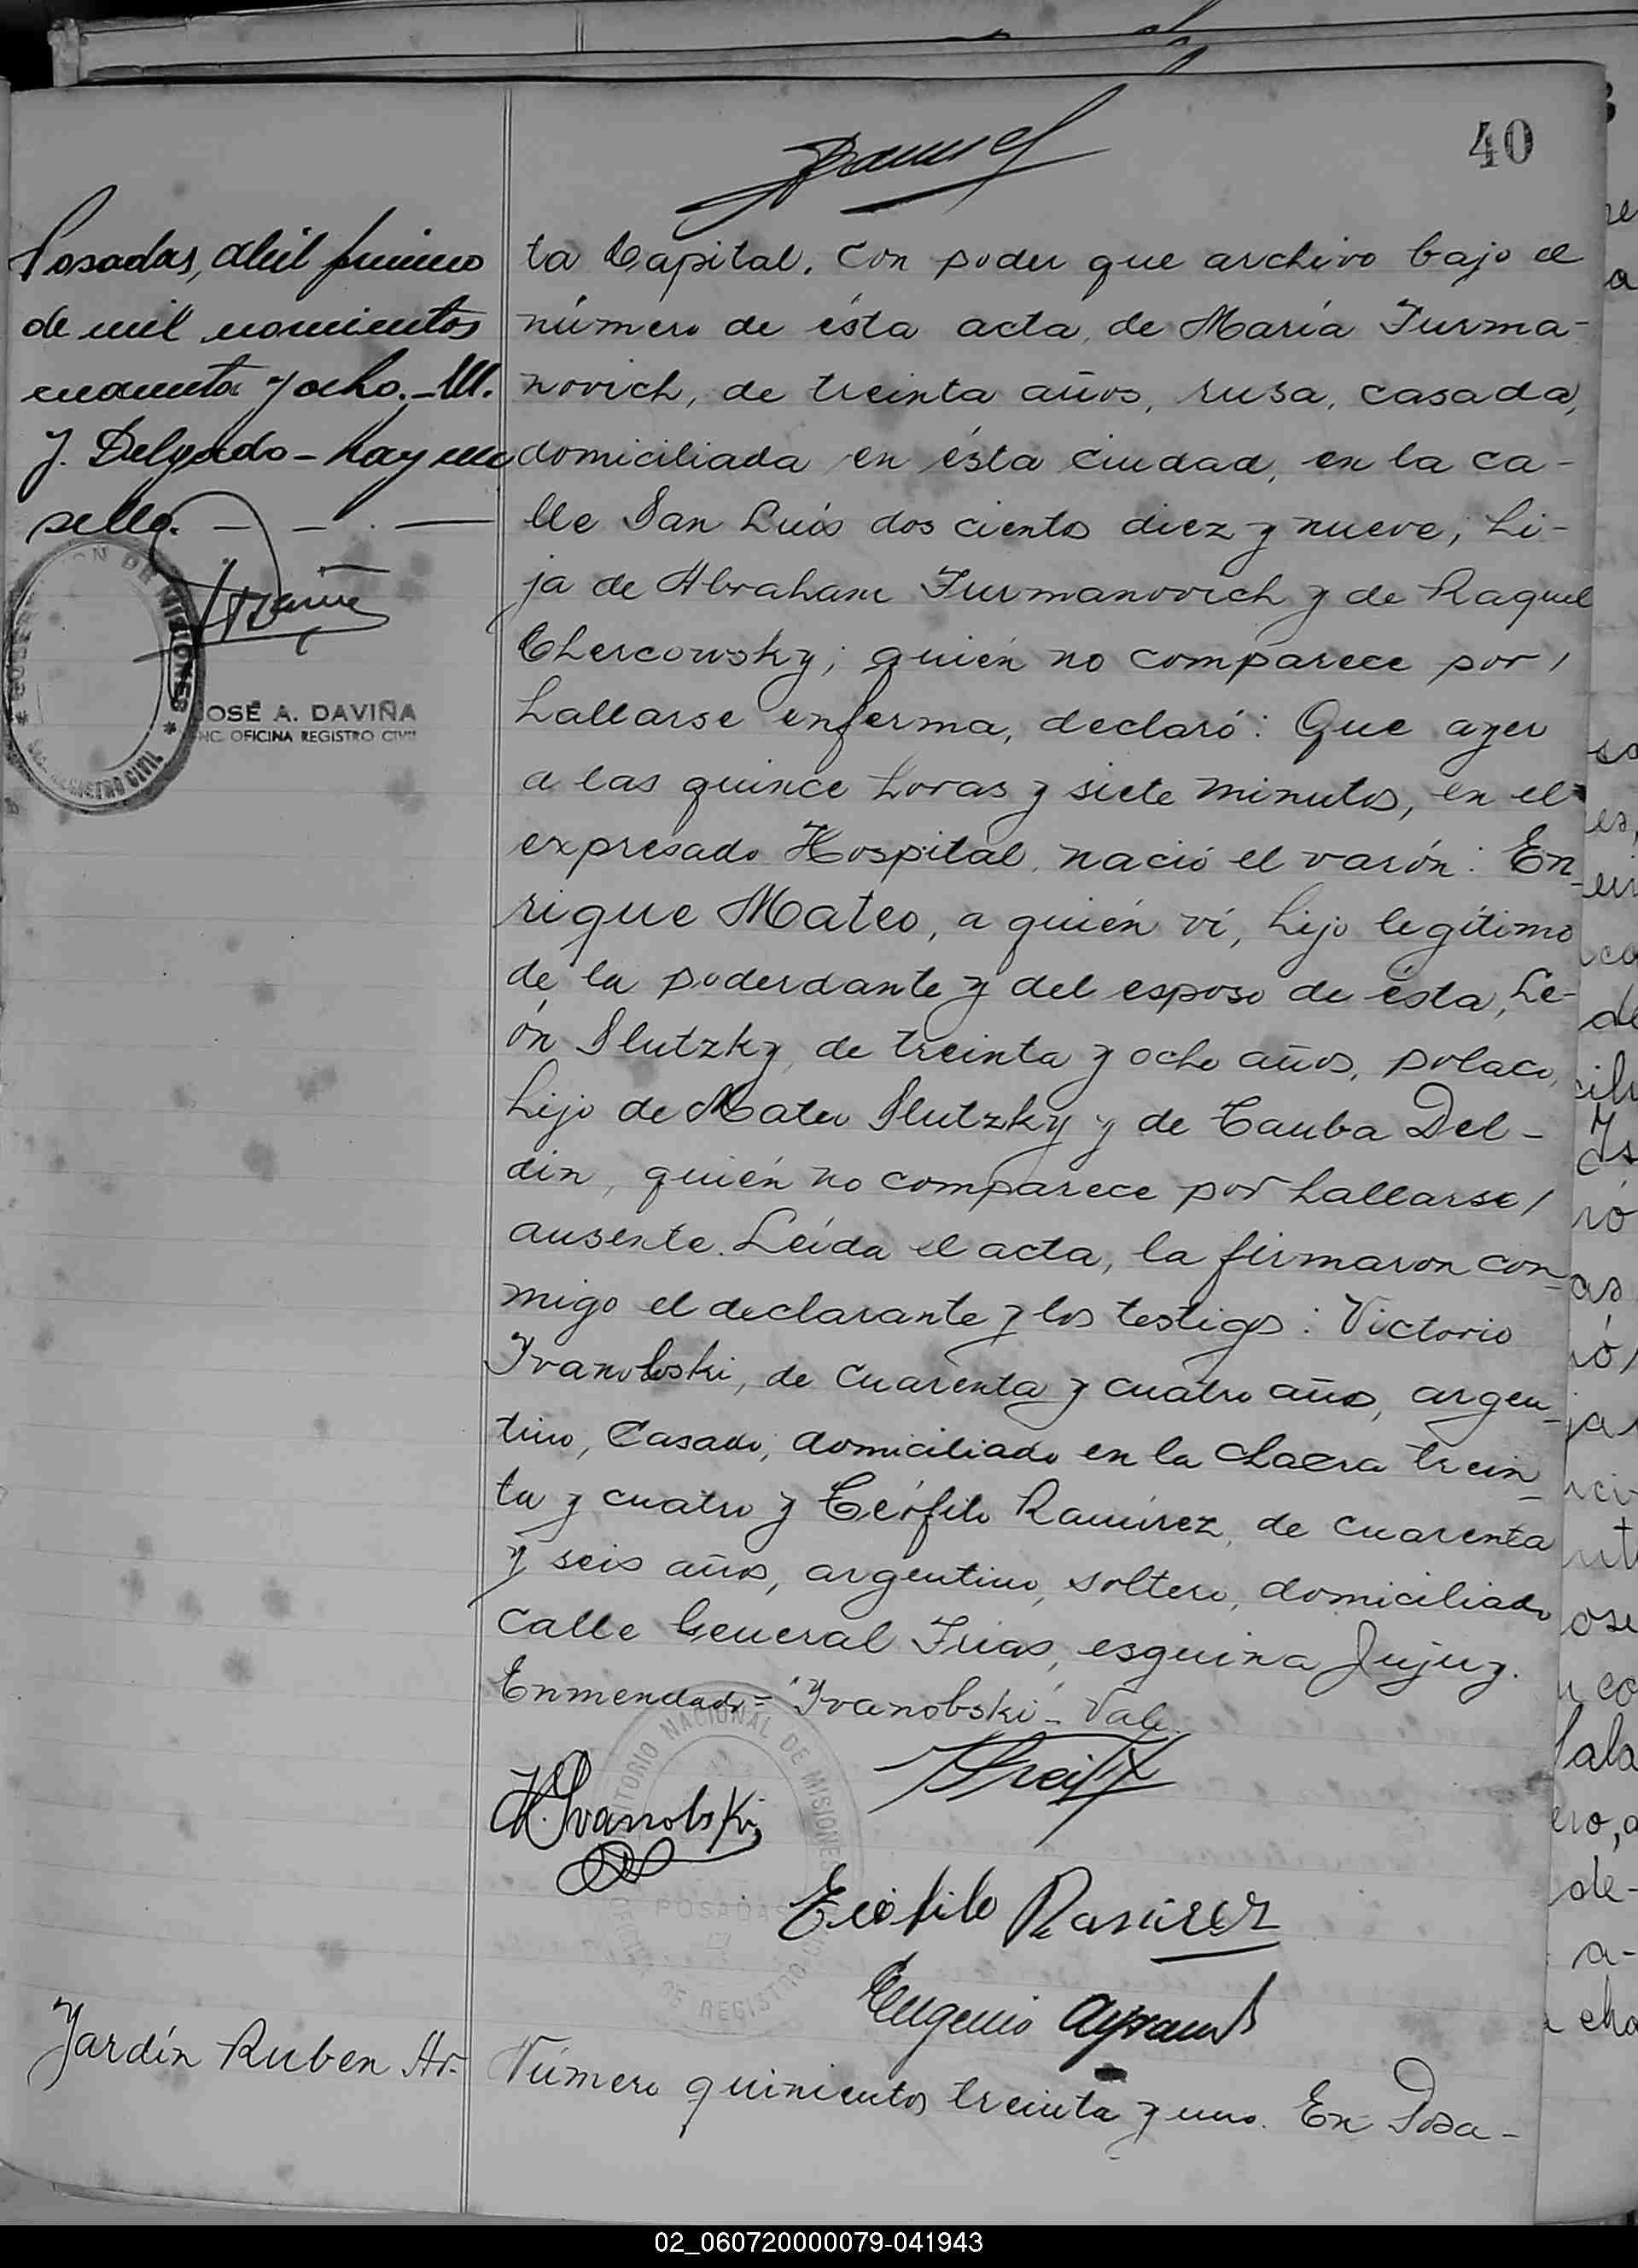 40
Posadas, abril primero
de mil novecientos
cuarenta y ocho. - M.
J. Delgado - hay un
sello. - - . -
GOBERNACIÓN DE MISIONES
REGISTRO CIVIL
JOSÉ A. DAVIÑA
ENC. OFICINA REGISTRO CIVIL
ta Capital. Con poder que archivo bajo el
número de ésta acta, de María Furma-
novich, de treinta años, rusa, casada,
domiciliada en ésta ciudad, en la ca-
lle San Luis dos ciento diez y nueve, hi-
ja de Abraham Furmanovich y de Raquel
Chercowsky; quién no comparece por /
hallarse enferma, declaró: Que ayer
a las quince horas y siete minutos, en el
expresado Hospital, nació el varón: En-
rique Mateo, a quién ví, hijo legítimo
de la poderdante y del esposo de ésta, Le-
ón Slutzky, de treinta y ocho años, polaco,
hijo de Mateo Slutzky y de Tauba Del-
din, quién no comparece por hallarse /
ausente. Leída el acta, la firmaron con-
migo el declarante y los testigos: Victorio
Ivanobski, de cuarenta y cuatro años, argen-
tino, casado, domiciliado en la chacra trein-
ta y cuatro y Teófilo Ramírez, de cuarenta
y seis años, argentino, soltero, domiciliado
calle General Frias, esquina Jujuy.
Enmendado = "Ivanobski" - Vale
TERRITORIO NACIONAL DE MISIONES
POSADAS
OFICINA DE REGISTRO CIVIL
V. Ivanobski
Teófilo Ramirez
Eugenio
Jardín Ruben Ar-
Número quinientos treinta y uno. En Posa-
02_060720000079-041943